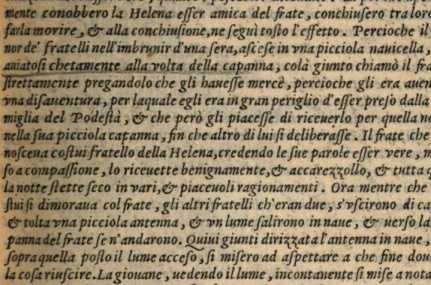 mente conobbero la Helena esser amica del frate, conchiusero tra loro
farla morire, & alla conchiusione, ne seguì tosto l'effetto. Percioche il
nor de' fratelli nell'imbrunir d'una sera, ascese in vna picciola nauicella,
auiatosi chetamente alla volta della capanna, colà giunto chiamò il fra
strettamente pregandolo che gli hauesse mercè, percioche gli era auen
vna disauentura, per laquale egli era in gran periglio d'esser preso dalla
miglia del Podestà, & che però gli piacesse di riceuerlo per quella no
nella sua picciola capanna, fin che altro di lui si deliberasse. Il frate che
noscena costui fratello della Helena, credendo le sue parole esser vere, m
so a compassione, lo riceuette benignamente, & accarezzollo, & tutta q
la notte stette seco in vari, & piaceuoli ragionamenti. Ora mentre che
stui si dimoraua col frate, gli altri fratelli ch'eran due, s'vscirono di ca
& tolta vna picciola antenna, & vn lume salirono in naue, & uerso la
panna del frate se n'andarono. Quiui giunti dirizzata l'antenna in naue,
sopra quella posto il lume acceso, si misero ad aspettare a che fine dou
la cosa riuscire. La giouane, uedendo il lume, incontanente si mise a nota